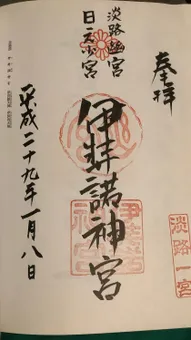 奉拝
淡路幽宮
日之少宮
伊弉諾神宮
平成二十九年一月八日
淡路一宮